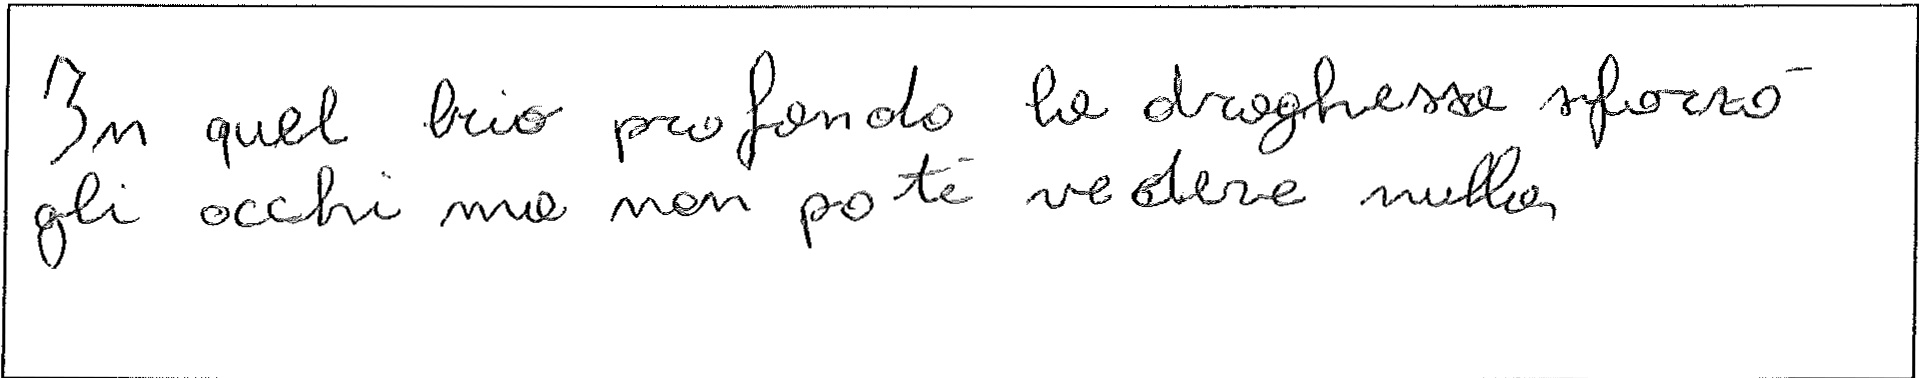 In quel brio profondo la draghessa sforzò
gli occhi ma non poté vedere nulla,